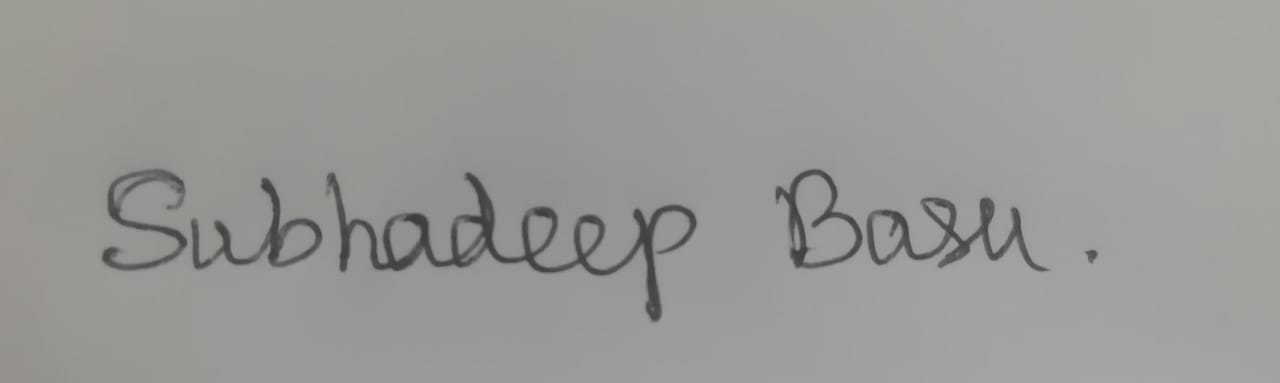 Subhadeep Basu.